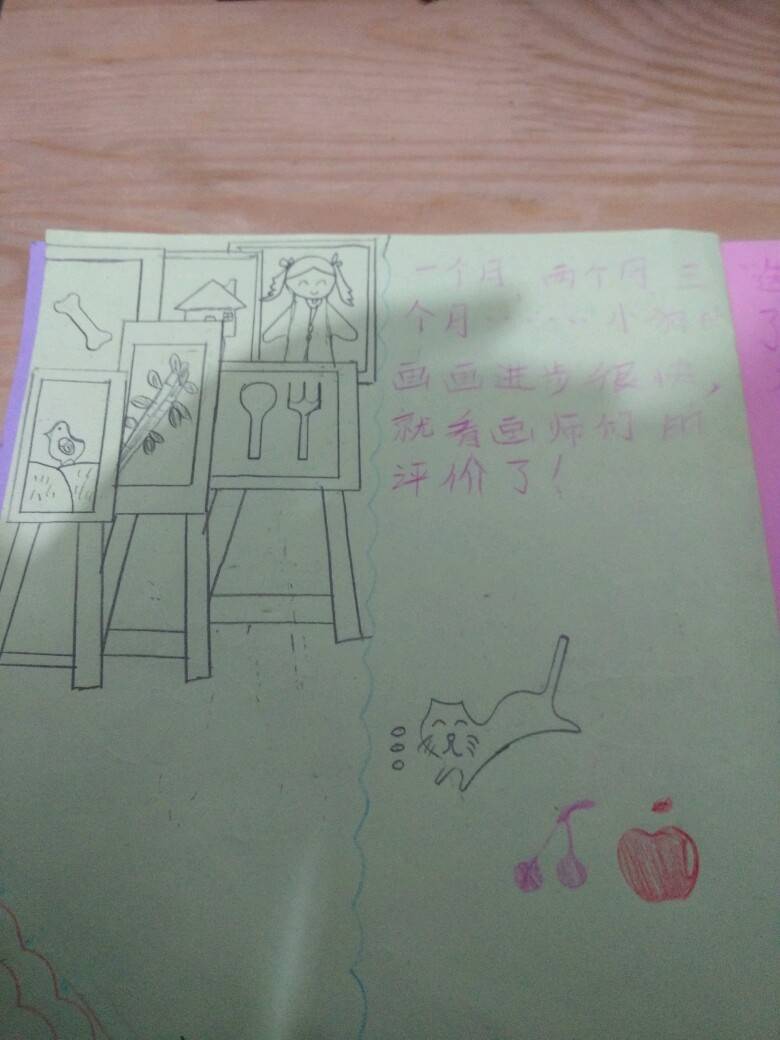 一个月 两个月 三
个月…… 小狗的
画画进步很快，
就看画师们的
评价了！